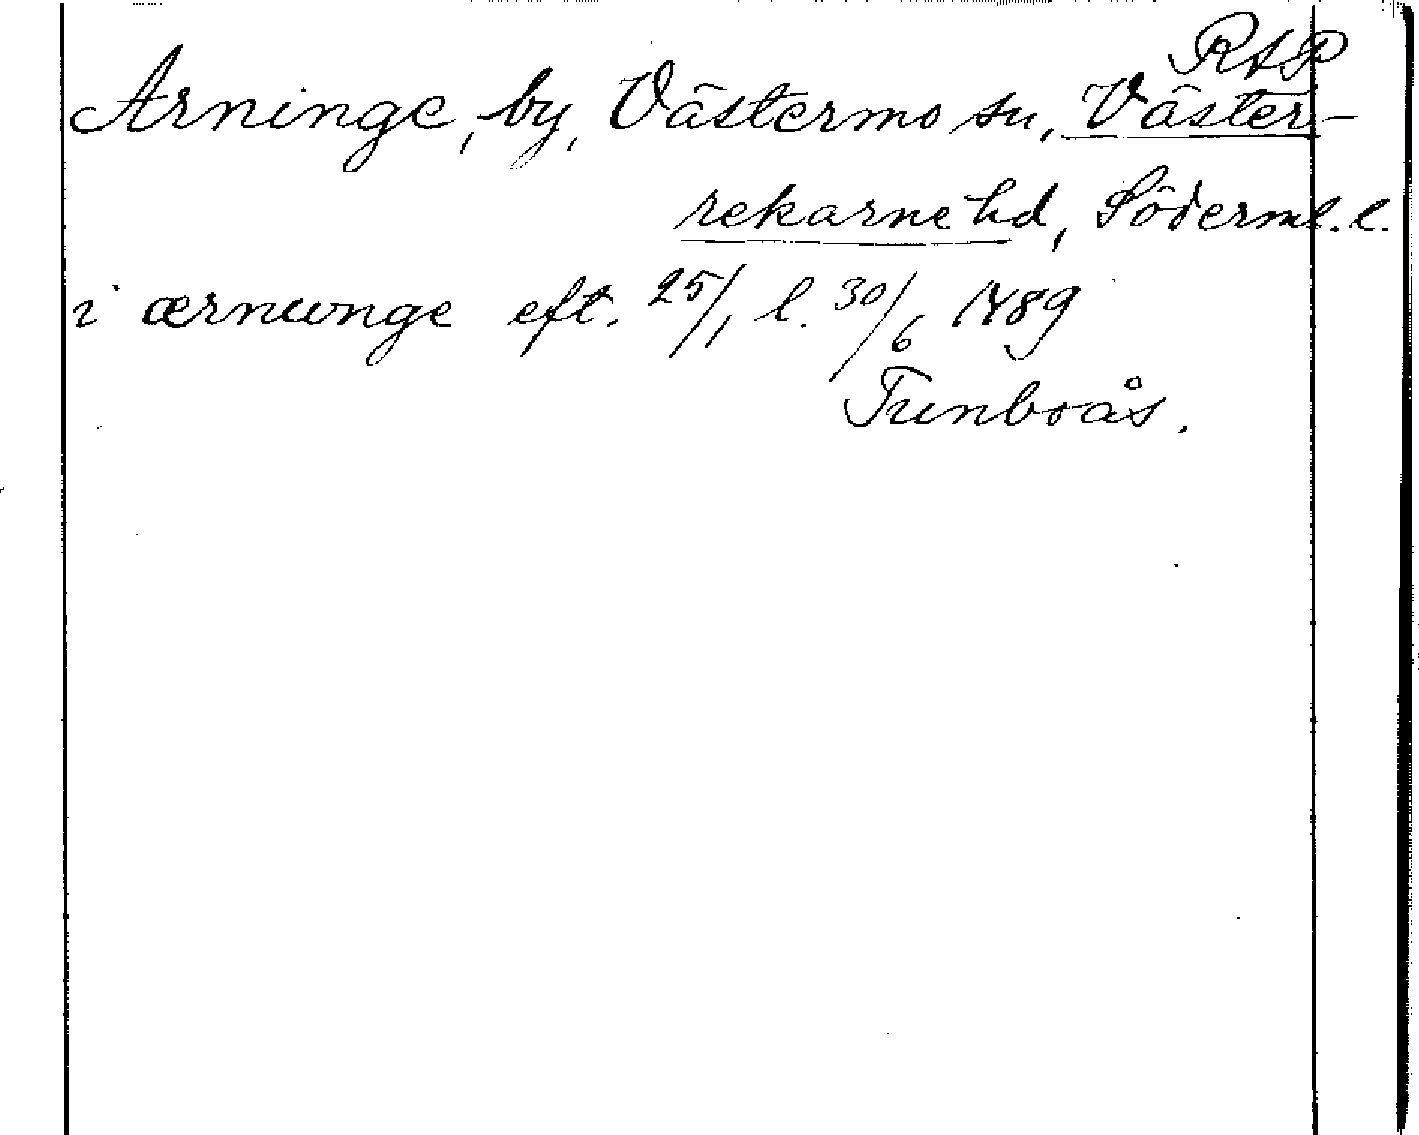 RAP
Arninge, by, Västermo sn, Väster-
rekarne hd, Söderml. l.
i ærnunge eft. 25/1 l. 30/6 1489
Tunboås.